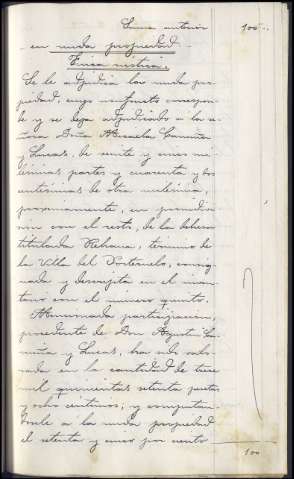 Suma anterior 100
en nuda propiedad
Finca rústica.
Se le adjudica la nuda pro-
piedad, cuyo usufructo correspon-
de y se deja adjudicado a la se-
ñora Doña Micaela
y Lucas, de veinte y una mi-
lésimas partes y cuarenta y dos
centésimas de otra milésima,
proindiviso
con el resto, de la dehesa
titulada término de
la Villa del consig-
nada y descrita en el inven-
tario con el número quinto.
participación,
procedente de Don Agustín
y Lucas, ha sido valo-
rada en la cantidad de trece
mil quinientas setenta pesetas
y ocho céntimos; y computan-
dosele a la nuda propiedad
el setenta y cinco por ciento
100